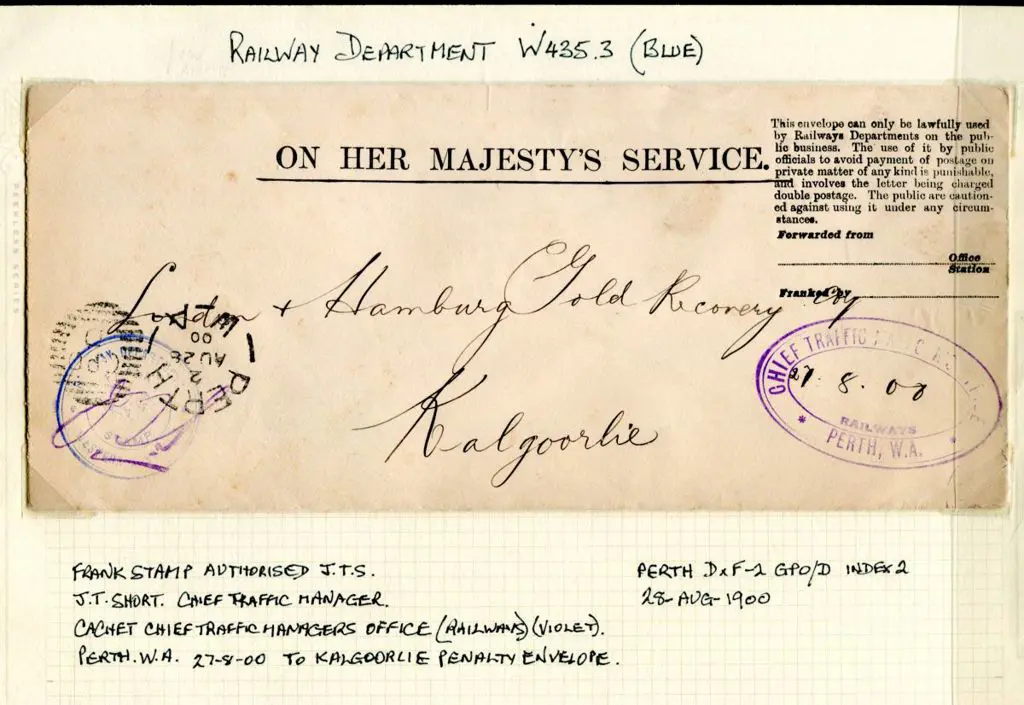 RAILWAY DEPARTMENT W435.3 (BLUE)
ON HER MAJESTY'S SERVICE.
This envelope can only be lawfully used
by Railways Departments on the pub-
lic business. The use of it by public
officials to avoid payment of postage on
private matter of any kind is punishable,
and involves the letter being charged
double postage. The public are caution-
ed against using it under any circum-
stances.
Forwarded from
Office
Station
Franked by
London + Hamburg Gold Recovery Coy
Kalgoorlie
PERTH
2
AU 28
00
W.A
GPO
STAMP
CHIEF TRAFFIC
27. 8. 00
RAILWAYS
PERTH, W.A.
FRANK STAMP AUTHORISED J.T.S.
J.T. SHORT. CHIEF TRAFFIC MANAGER.
CACHET CHIEF TRAFFIC MANAGERS OFFICE (RAILWAYS) (VIOLET).
PERTH. W.A. 27-8-00 TO KALGOORLIE PENALTY ENVELOPE.
PERTH DxF-2 GPO/D INDEX 2
28-AUG-1900
PEERLESS SERIES